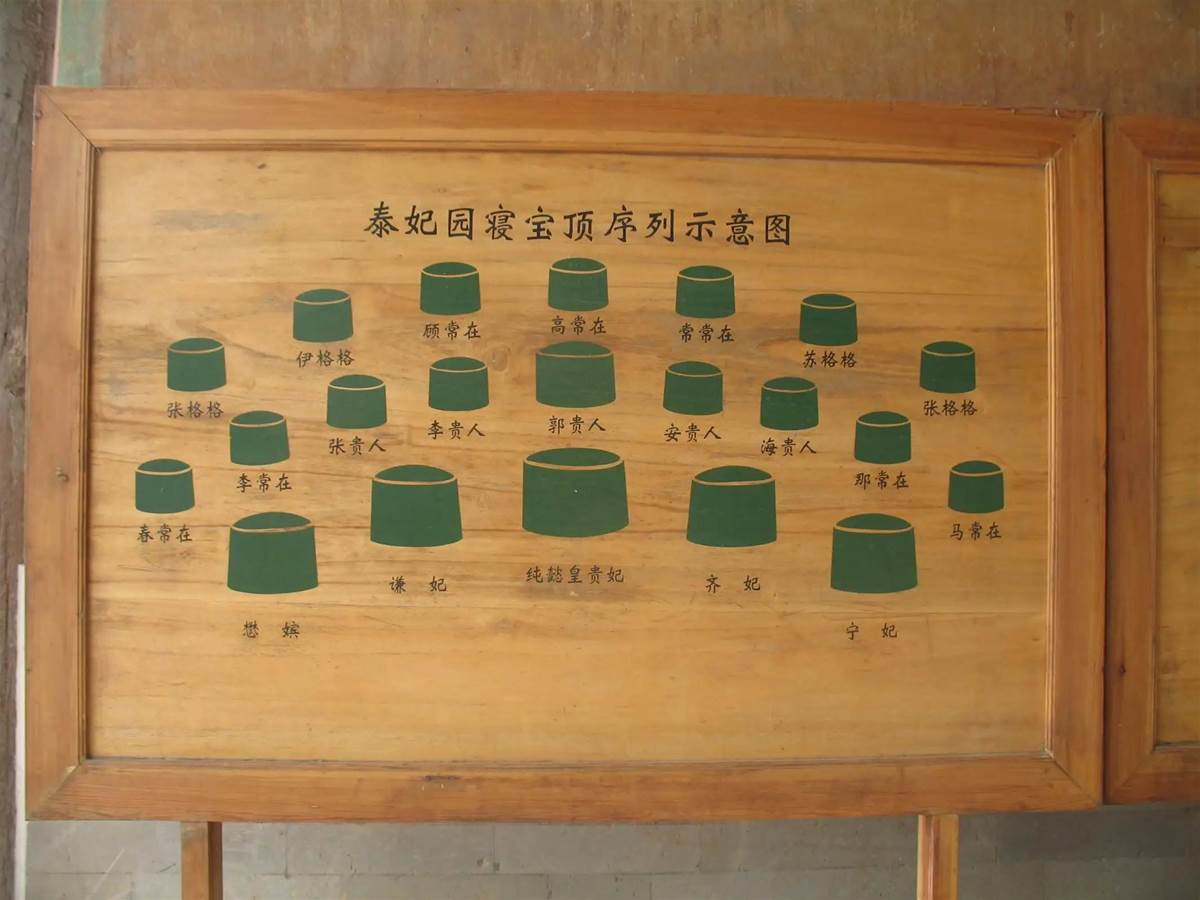 泰妃园寝宝顶序列示意图
张格格 伊格格 顾常在 高常在 常常在 苏格格 张格格
春常在 李常在 张贵人 李贵人 郭贵人 安贵人 海贵人 那常在 马常在
懋 嫔 谦 妃 纯懿皇贵妃 齐 妃 宁 妃